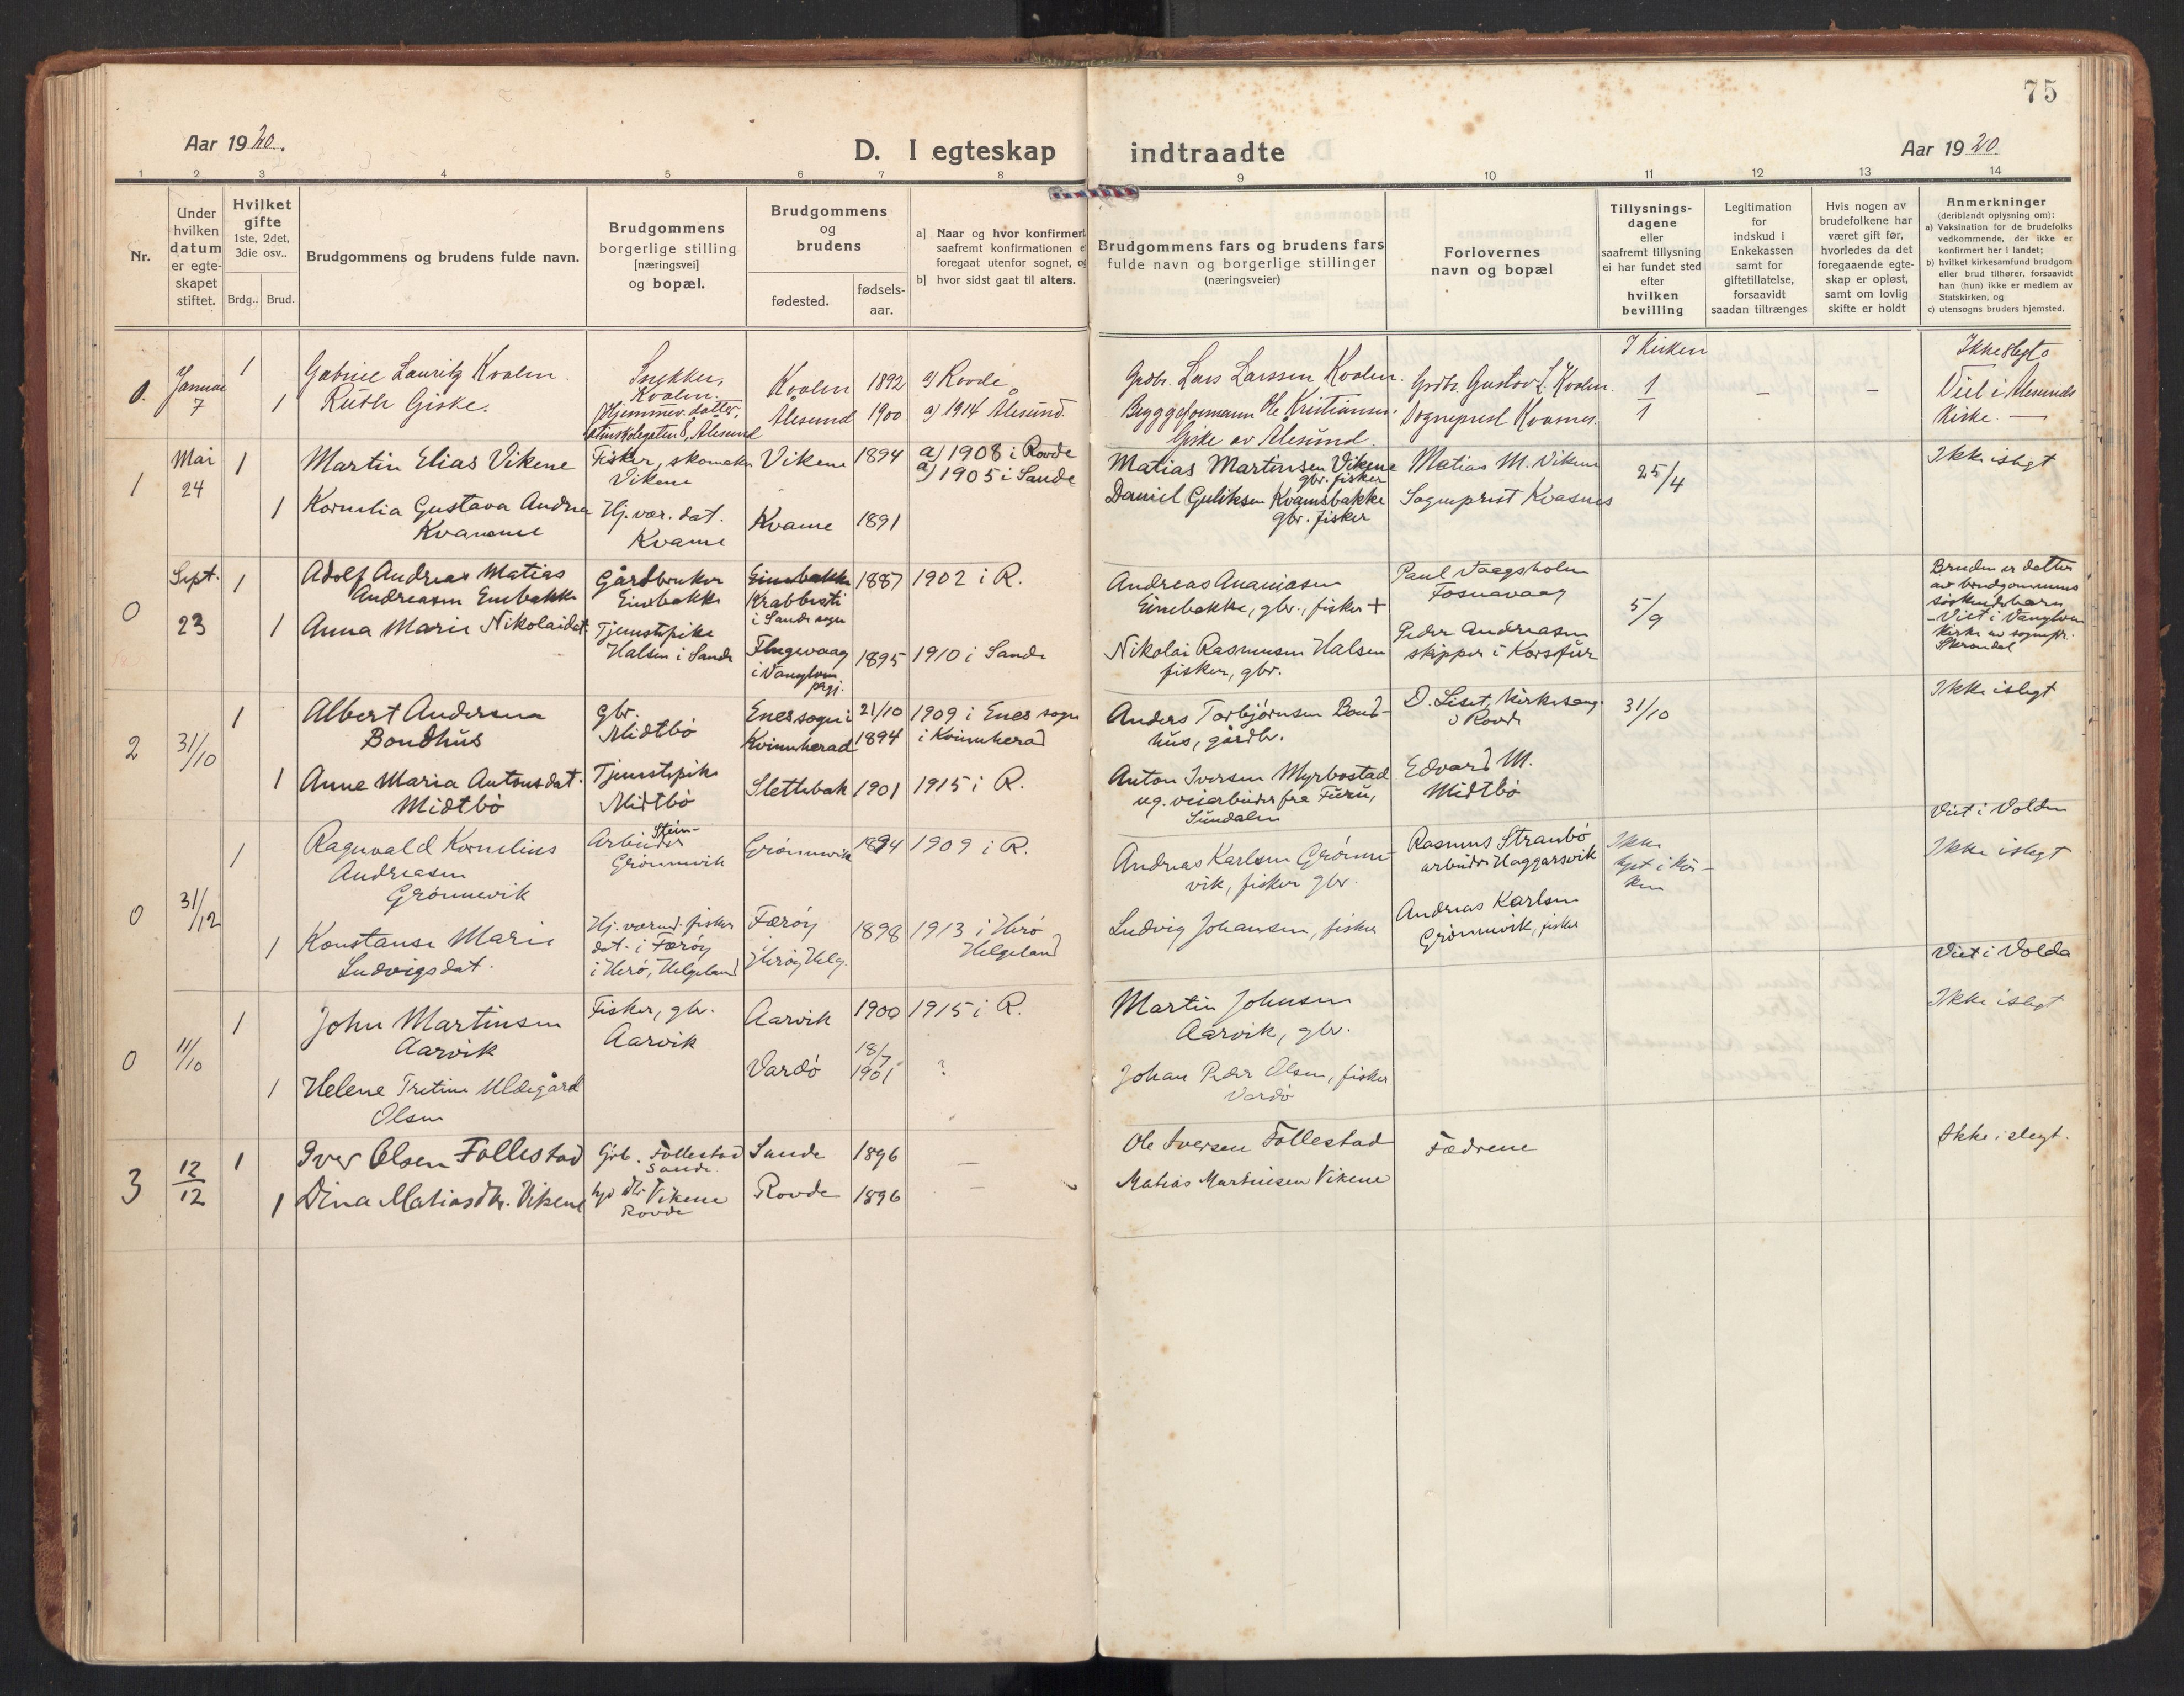 75
Aar 1920.
D. I egteskap indtraadte
Aar 1920
1 2 3 4 5 6 7 8 9 10 11 12 13 14
Nr.
Under
hvilken
datum
er egte-
skapet
stiftet.
Hvilket
gifte
1ste, 2det,
3die osv..
Brdg.. Brud.
Brudgommens og brudens fulde navn.
Brudgommens
borgerlige stilling
[næringsvei]
og bopæl.
Brudgommens
og
brudens
fødested.
fødsels-
aar.
a] Naar og hvor konfirmert
saafremt konfirmationen e
foregaat utenfor sognet, og
b] hvor sidst gaat til alters.
Brudgommens fars og brudens fars
fulde navn og borgerlige stillinger
(næringsveier)
Forlovernes
navn og bopæl
Tillysnings-
dagene
eller
saafremt tillysning
ei har fundet sted
efter
hvilken
bevilling
Legitimation
for
indskud i
Enkekassen
samt for
giftetillatelse,
forsaavidt
saadan tiltrænges
Hvis nogen av
brudefolkene har
været gift før,
hvorledes da det
foregaaende egte-
skap er opløst,
samt om lovlig
skifte er holdt
Anmerkninger
(deriblendt oplysning om):
a) Vaksination for de brudefolks
vedkommende, der ikke er
konfirmert her i landet;
b) hvilket kirkesamfund brudgom
eller brud tilhører, forsaavidt
han (hun) ikke er medlem av
Statskirken, og
c) utensogns bruders hjemsted.
0.
Januar
7
1
Gabriel Lauritz Kvalen.
Snekker,
Kvalen.
Kvalen
1892
a) Rovde.
Grdbr. Lars Larssen Kvalen.
Grdb. Gustav L. Kvalen.
I kirken
1
1
–
–
Ikke slegt
Viet i Ålesunds
Kirke. —
1
Ruth Giske.
Hjemmev. datter,
8, Ålesund
Ålesund
1900
a) 1914 Ålesund.
Byggeformann Ole Kristiansen
Giske av Ålesund.
Sogneprest Kvasnes.
1
Mai
24
1
Martin Elias Vikene
Fisker, skomaker
Vikene
Vikene
1894
a) 1908 i Rovde
a) 1905 i Sande
Matias Martinsen Vikene
gbr. fisker
Matias M. Vikene
25/4
Ikke i slegt
1
Kornelia Gustava Andrea
Kvamme
Hj. vær. dat.
Kvame
Kvame
1891
Daniel Guliksen Kvamsbakke
gbr. fisker
Sogneprest Kvasnes
0
Sept.
23
1
Adolf Andreas Matias
Andreasen Einebakke
Gårdbruker
Einebakke
Einebakke
Krabbesti
i Sande sogn
1887
1902 i R.
Andreas Ananiasen
Einebakke, gbr., fisker +
Paul Vaagsholm
Fosnavaag
5/9
Bruden er datter
av brudgommens
søskendebarn
– Viet i Vanylven
Kirke av sognepr.
1
Anna Marie Nikolaidat.
Tjenestepike
Halsen i Sande
Flugevaag
i Vanylven
prgj.
1895
1910 i Sande
Nikolai Rasmusen Halsen
fisker, gbr.
Peder Andreasen
skipper i Korsfur
2
31/10
1
Albert Andersen
Bondhus
gbr.
Midtbö
Enes sogn i
Kvinnherad
21/10
1894
1909 i Enes sogn
i Kvinnherad
Anders Torbjørnsen Bond-
hus, gårdbr.
D. Liset, kirkesang.
i Rovde
31/10
Ikke i slegt
1
Anne Maria Antonsdat.
Midtbö
Tjenestepike
Midtbö
Slettebak
1901
1915 i R.
Anton Iversen Myrbostad
ug. veiarbeider fra Furu,
Sundalen
Edvard M.
Midtbö
0
31/12
1
Ragnvald Kornelius
Andreasen
Grönnevik
Stein-
Arbeider
Grönnevik
Grönnevik
1894
1909 i R.
Andreas Karlsen Grönne-
vik, fisker gbr.
Rasmus Strandbö
arbeider Haggarsvik
Ikke
lyst i kir-
ken
Viet i Volden
Ikke i slegt
1
Konstanse Marie
Ludvigsdat.
Hj. værend. fisker
dat. i Færöy
i Herö, Helgeland
Færöy
i Heröy Helg.
1898
1913 i Herö
Helgeland
Ludvig Johansen, fisker
Andreas Karlsen
Grönnevik, fisker
0
11/10
1
John Martinsen
Aarvik
Fisker, gbr.
Aarvik
Aarvik
1900
1915 i R.
Martin Johnsen
Aarvik, gbr.
Viet i Volda
Ikke i slegt
1
Helene Tretine Uldegård
Olsen
Vardö
18/7
1901
?
Johan Peder Olsen, fisker
Vardö
3
12
12
1
Iver Olsen Follestad
Grb. Follestad
Sande.
Sande
1896
–
Ole Iversen Follestad
Fædrene
Ikke i slegt.
1
Dina Matiasdtr. Vikene
Vikene
Rovde
Rovde
1896
–
Matias Martinsen Vikene